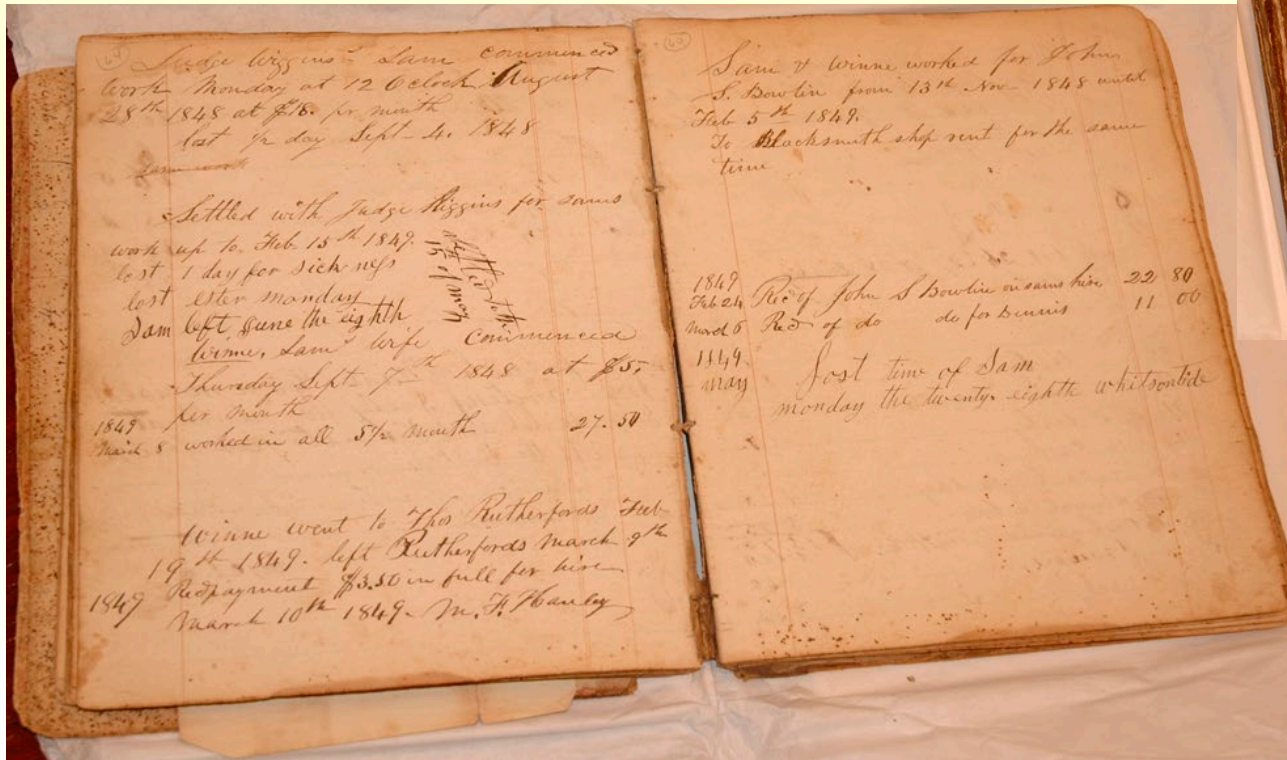 64
Judge Wiggins' Sam commenced
work Monday at 12 Oclock August
28th 1848 at $18. per month
lost 1/2 day Sept 4. 1848
Sam work
Settled with Judge Higgins for Sams
work up to Feb 15th 1849.
lost 1 day for sickness
lost ester monday
Sam left June the eighth
15 of may
Winne, Sams wife commenced
Thursday Sept 7th 1848 at $5.
per month
1849
March 8 worked in all 5 1/2 month 27.50
Winne went to Thos Rutherfords Feb
19th 1849. left Rutherfords March 9th
1849 Recd payment $3.50 in full for hire
March 10th 1849. M. F. Hanley
65
Sam & Winne worked for John
S. Bowlin from 13th Nov 1848 until
Feb 5th 1849.
To Blacksmith shop rent for the same
time
1849
Feb 24 Recd of John S Bowlin on sams hire 22 80
March 6 Recd of do do for Dennis 11 00
1849
May lost time of Sam
monday the twenty. eighth whitsontide